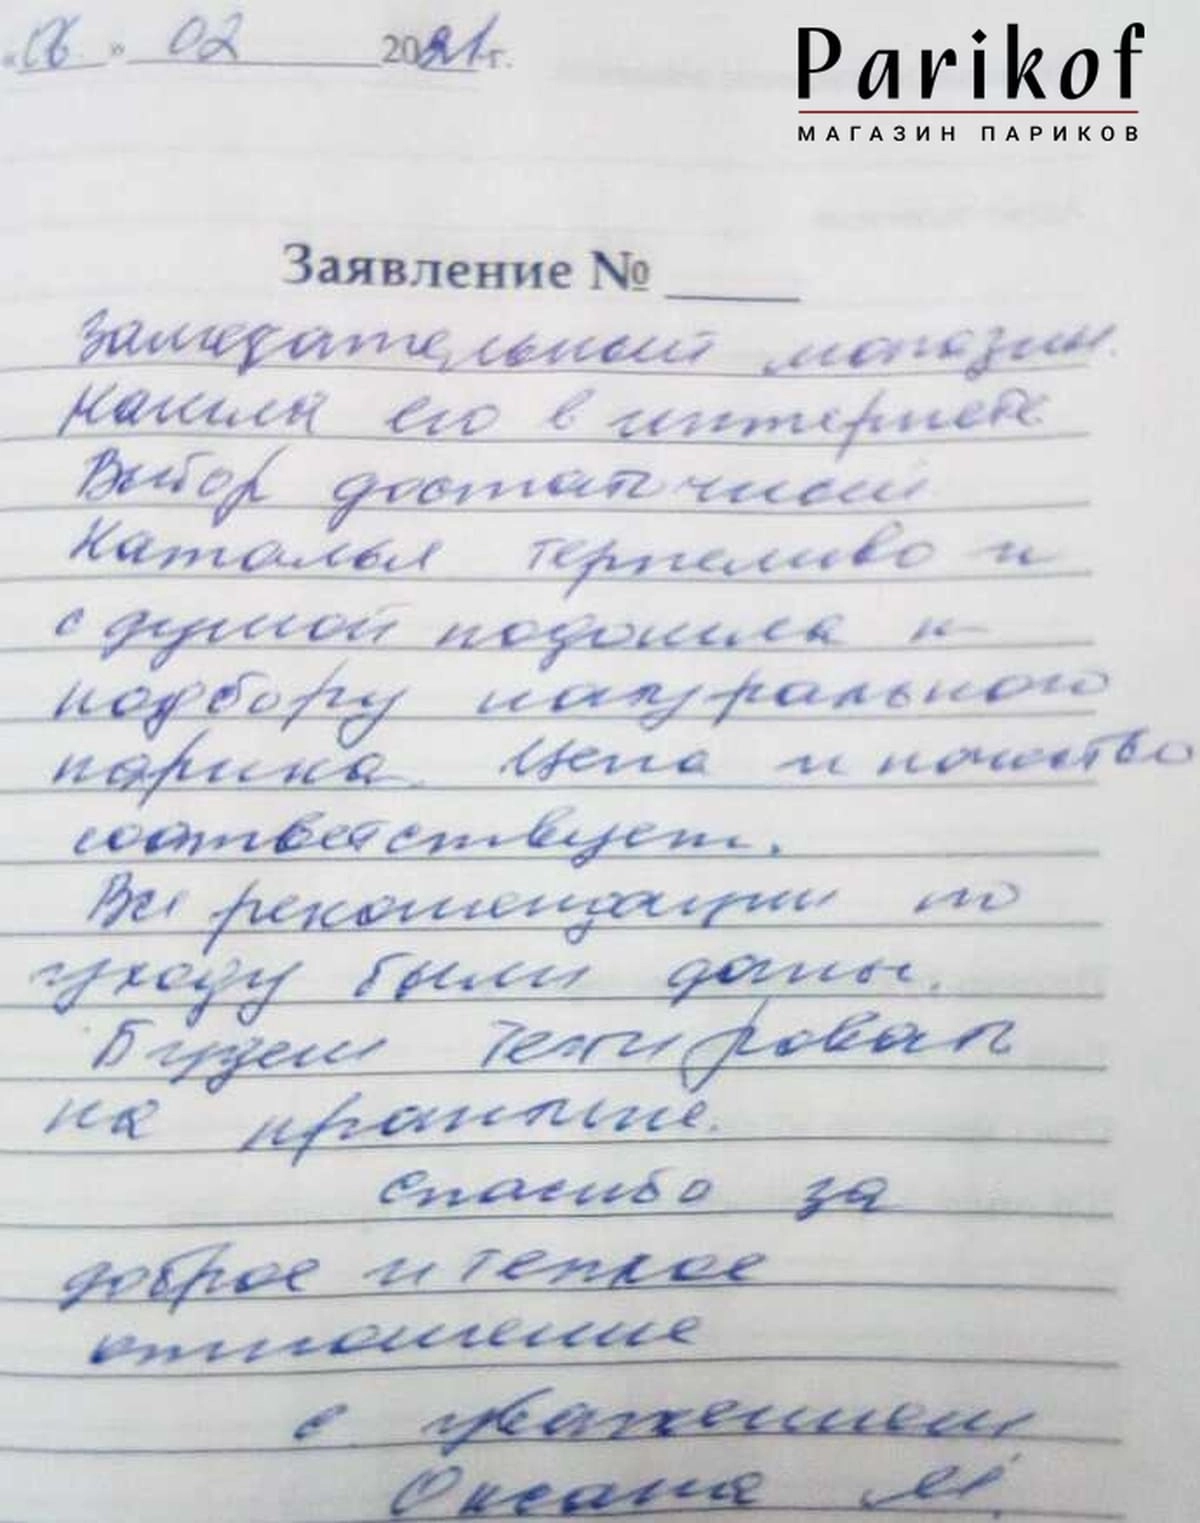 «06» 02 2021 г.
Parikof
МАГАЗИН ПАРИКОВ
Заявление №
Замечательный магазин.
Нашла его в интернете
Выбор достаточный
Наталья терпеливо и
с душой подошла к
подбору натурального
парика. Цена и качество
соответствует.
Все рекомендации по
уходу были даны.
Будем тестировать
на практике.
Спасибо за
доброе и теплое
отношение
с уважением
Оксана М.